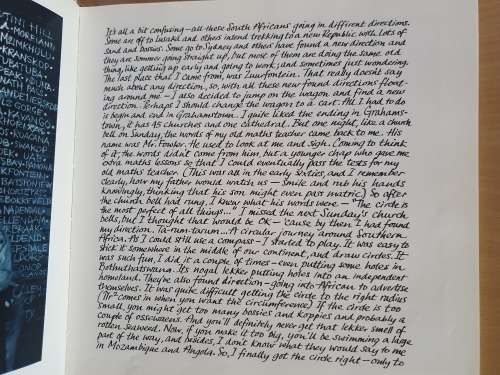 It's all a bit confusing - all these South Africans going in different directions.
Some are off to Lusaka and others intend trekking to a new Republic with lots of
sand and bossies. Some go to Sydney and others have found a new direction and
they are sommer going straight up, but most of them are doing the same old
thing, like getting up early and going to work, and sometimes just wondering.
The last place that I came from, was Zuurfontein. That really doesn't say
much about any direction, so, with all these new found directions float-
ing around me - I also decided to jump on the wagon and find a new
direction. Perhaps I should change the wagon to a cart. All I had to do
is begin and end in Grahamstown. I quite liked the ending in Grahams-
town, it has 45 churches and one cathedral. But one night, like a church
bell on Sunday, the words of my old maths teacher came back to me. His
name was Mr. Fowler. He used to look at me and sigh. Coming to think
of it, the words didn't come from him, but a younger chap who gave me
extra maths lessons so that I could eventually pass the tests for my
old maths teacher. (This was all in the early Sixties, and I remember
clearly, how my father would watch us - smile and rub his hands
knowingly, thinking that his son might even pass matric.) So after
the church bell had rung, I knew what his words were. - "The circle is
the most perfect of all things..." I missed the next Sunday's church
bells, but I thought that would be OK - 'cause by then I had found
my direction. Ta-rum-tarum... A circular journey around Southern
Africa. As I could still use a compass - I started to play. It was easy to
stick it somewhere in the middle of our continent, and draw circles. It
was such fun, I did it a couple of times - even putting some holes in
Bothuthatswana. Its nogal lekker putting holes into an independent
homeland. They've also found direction - going into African to advertise
themselves. It was quite difficult getting the circle to the right radius
(πr² comes in when you want the circumference.) If the circle is too
small, you might get too many bossies and koppies and probably a
couple of ossewaens. And you'll definitely never get that lekker smell of
rotten seaweed. Now, if you make it too big, you'll be swimming a large
part of the way, and besides, I don't know what they would say to me
in Mozambique and Angola. So, I finally got the circle right - only to